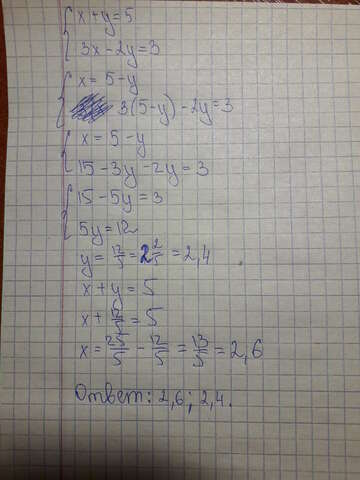 x+y=5
3x-2y=3
x=5-y
3(5-y)-2y=3
x=5-y
15-3y-2y=3
15-5y=3
5y=12
y=12/5=2 2/5=2,4
x+y=5
x+12/5=5
x=25/5-12/5=13/5=2,6
Ответ: 2,6; 2,4.